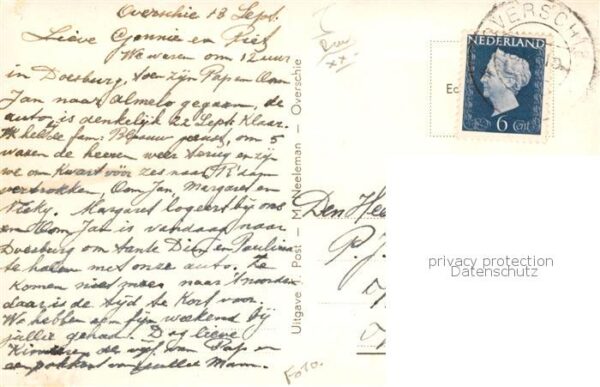 Overschie 13 Sept.
Lieve Gennie en Piet
We waren om 12 uur
in Doesburg, toen zijn Pap en Oom
Jan naar Almelo gegaan, de
auto is denkelijk 22 Sept. Klaar.
We hebben fam. Blaauw gerust, om 5
waren de heeren weer terug en zijn
we om Kwart vóór zes naar R'dam
vertrokken, Oom Jan, Margaret en
Margaret logeert bij ons
en Oom Jan is vandaag naar
Doesburg om tante Dien en Paulina
te halen met onze auto. Ze
komen niet meer naar 't noorden
daar is de tijd te Kort voor.
We hebben een fijn weekend bij
jullie gehad. Dag lieve
Kinderen de van Pap en
een van jullie Mam.
Uitgave J. Post — M. Neeleman — Overschie
xx
OVERSCHIE
NEDERLAND
6 cent
Ec
Den Hee
P. J.
Foto.
privacy protection
Datenschutz